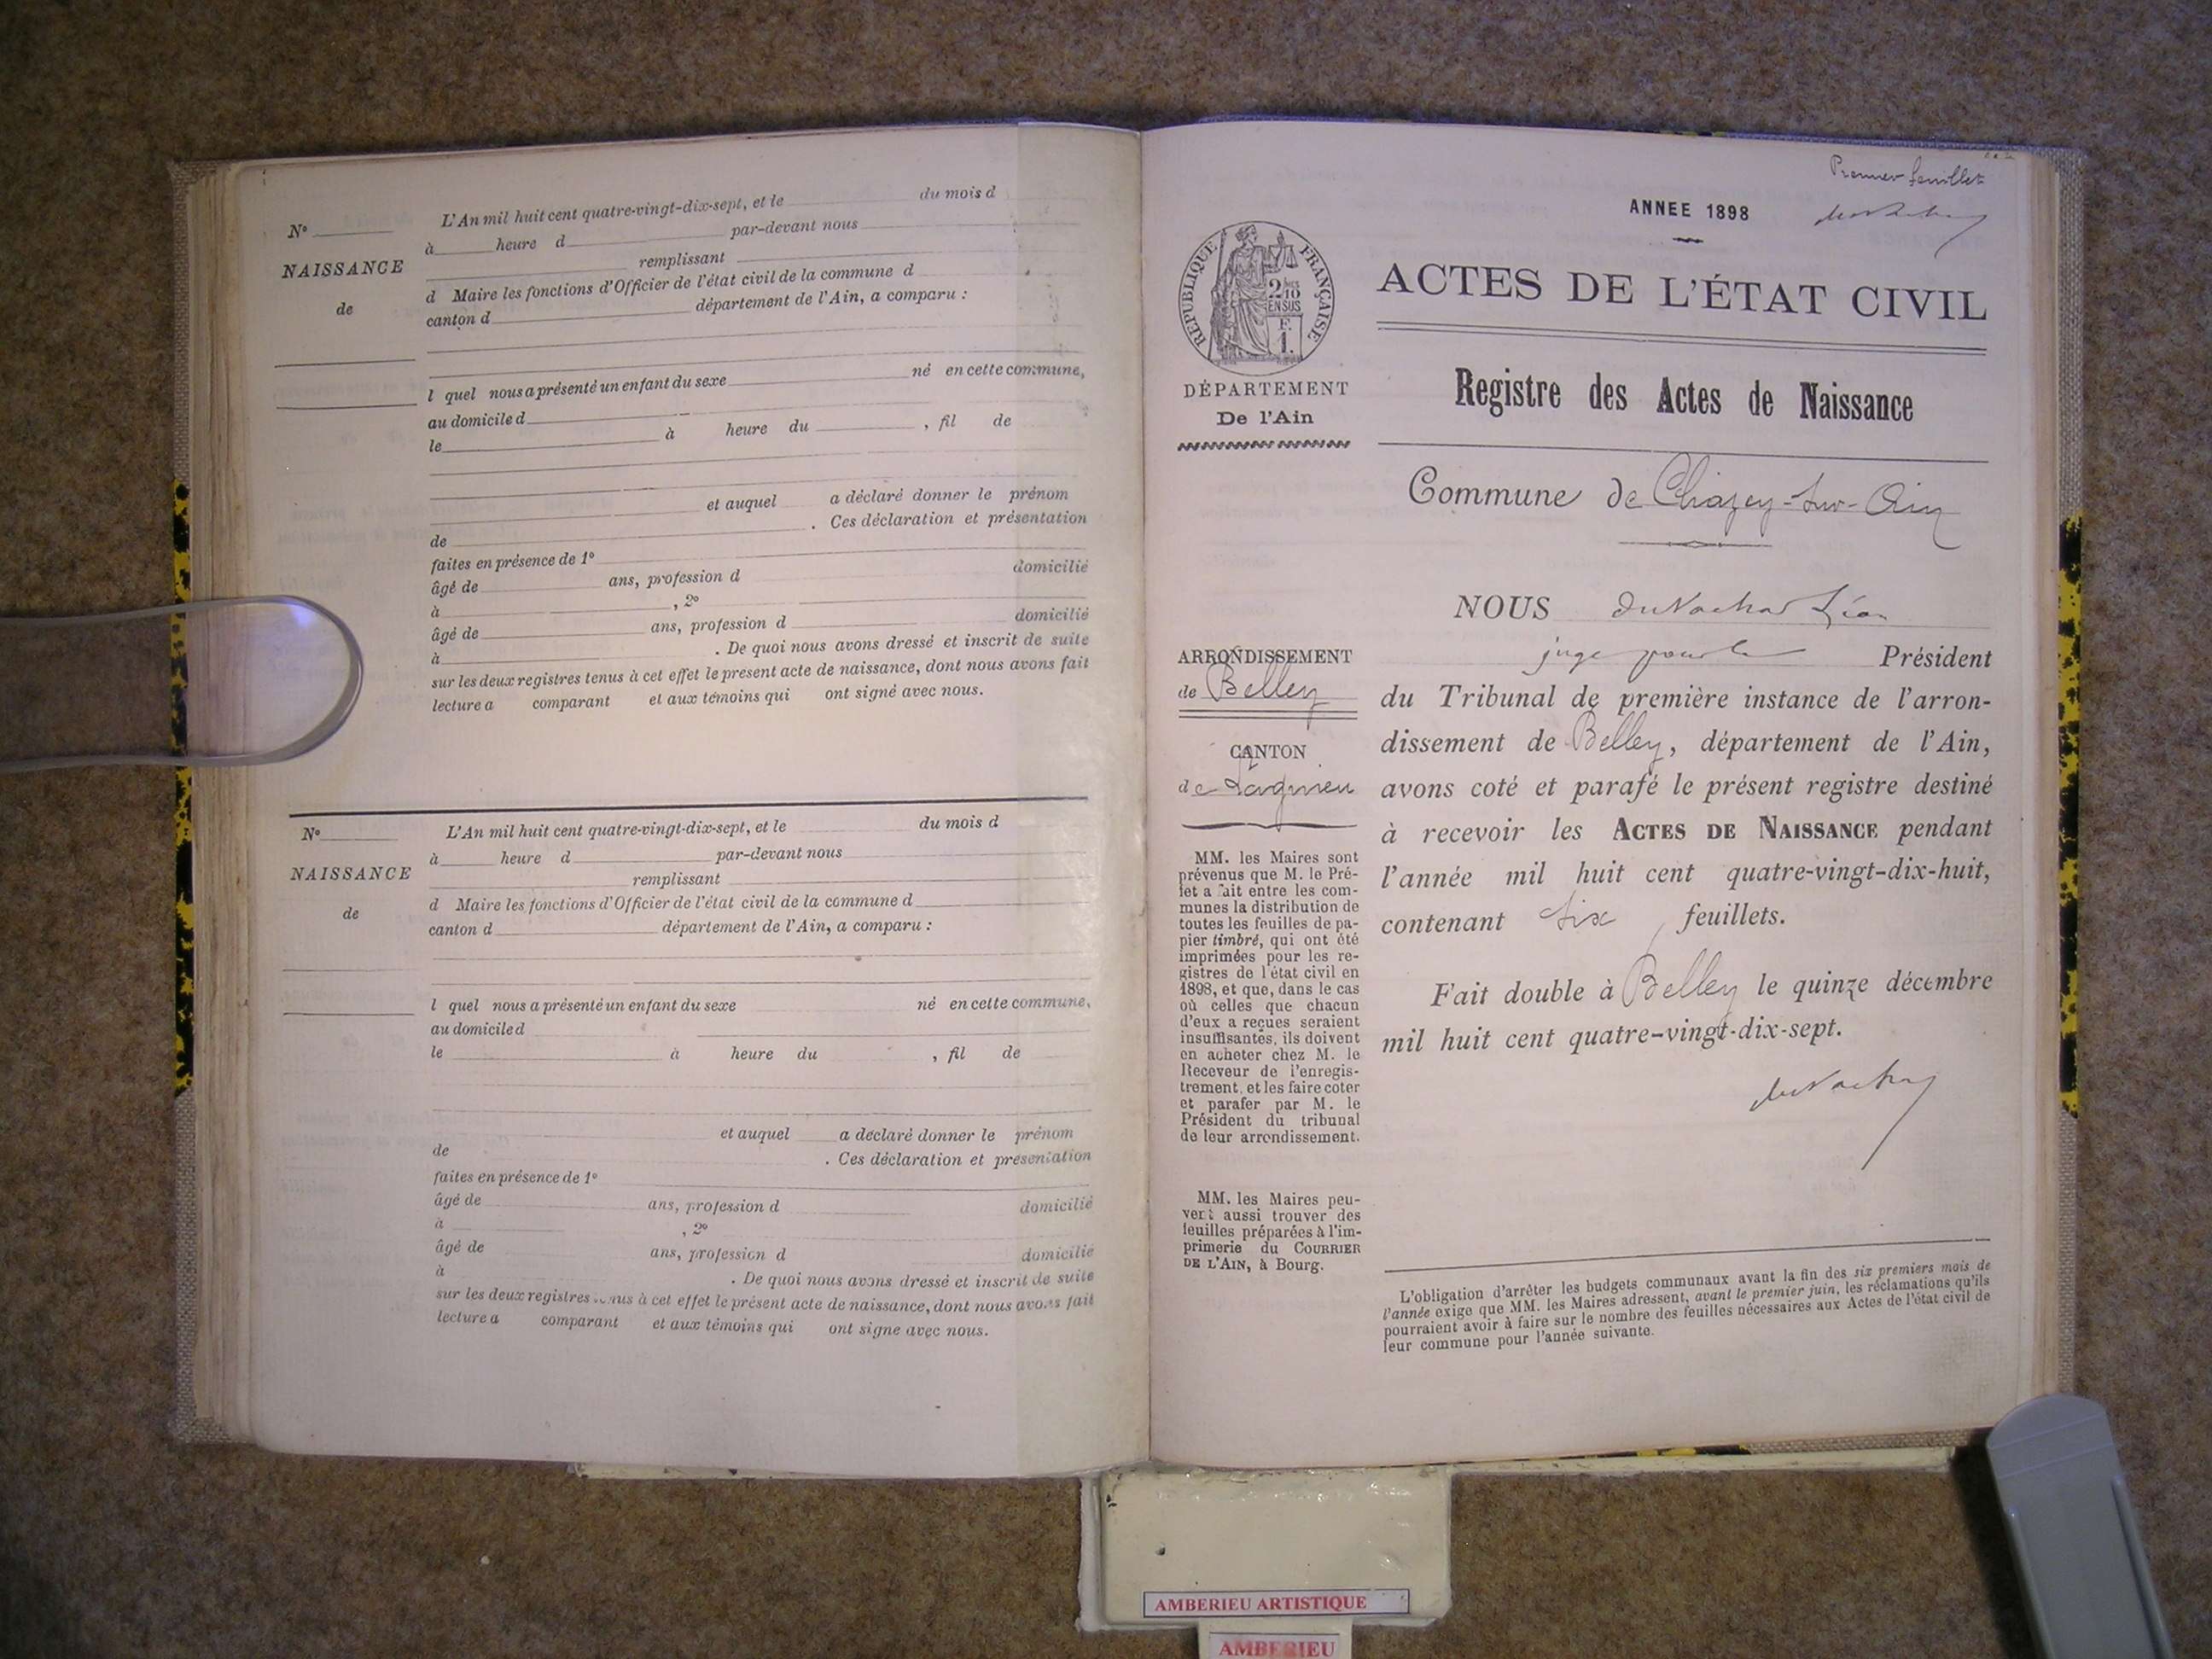 N°
NAISSANCE
de
L'An mil huit cent quatre-vingt-dix-sept, et le du mois d
à heure d par-devant nous
remplissant
d Maire les fonctions d'Officier de l'état civil de la commune d
canton d département de l'Ain, a comparu :
l quel nous a présenté un enfant du sexe né en cette commune,
au domicile d
le à heure du , fil de
et auquel a déclaré donner le prénom
de . Ces déclaration et présentation
faites en présence de 1°
âgé de ans, profession d domicilié
à , 2°
âgé de ans, profession d domicilié
à . De quoi nous avons dressé et inscrit de suite
sur les deux registres tenus à cet effet le present acte de naissance, dont nous avons fait
lecture a comparant et aux témoins qui ont signé avec nous.
N°
NAISSANCE
de
L'An mil huit cent quatre-vingt-dix-sept, et le du mois d
à heure d par-devant nous
remplissant
d Maire les fonctions d'Officier de l'état civil de la commune d
canton d département de l'Ain, a comparu :
l quel nous a présenté un enfant du sexe né en cette commune,
au domicile d
le à heure du , fil de
et auquel a déclaré donner le prénom
de . Ces déclaration et présentation
faites en présence de 1°
âgé de ans, profession d domicilié
à , 2°
âgé de ans, profession d domicilié
à . De quoi nous avons dressé et inscrit de suite
sur les deux registres tenus à cet effet le présent acte de naissance, dont nous avons fait
lecture a comparant et aux témoins qui ont signé avec nous.
Premier feuillet
ANNEE 1898
RÉPUBLIQUE FRANÇAISE
2/10
EN SUS
F.
1.
DÉPARTEMENT
De l'Ain
ACTES DE L'ÉTAT CIVIL
Registre des Actes de Naissance
Commune de Chazey-sur-Ain
ARRONDISSEMENT
de Belley
CANTON
de Lagnieu
MM. les Maires sont
prévenus que M. le Pré-
fet a fait entre les com-
munes la distribution de
toutes les feuilles de pa-
pier timbré, qui ont été
imprimées pour les re-
gistres de l'état civil en
1898, et que, dans le cas
où celles que chacun
d'eux a reçues seraient
insuffisantes, ils doivent
en acheter chez M. le
Receveur de l'enregis-
trement, et les faire coter
et parafer par M. le
Président du tribunal
de leur arrondissement.
MM. les Maires peu-
vent aussi trouver des
feuilles préparées à l'im-
primerie du COURRIER
DE L'AIN, à Bourg.
NOUS Léon
juge pour le Président
du Tribunal de première instance de l'arron-
dissement de Belley, département de l'Ain,
avons coté et parafé le présent registre destiné
à recevoir les ACTES DE NAISSANCE pendant
l'année mil huit cent quatre-vingt-dix-huit,
contenant six feuillets.
Fait double à Belley le quinze décembre
mil huit cent quatre-vingt-dix-sept.
L'obligation d'arrêter les budgets communaux avant la fin des six premiers mois de
l'année exige que MM. les Maires adressent, avant le premier juin, les réclamations qu'ils
pourraient avoir à faire sur le nombre des feuilles nécessaires aux Actes de l'état civil de
leur commune pour l'année suivante.
AMBERIEU ARTISTIQUE
AMBERIEU